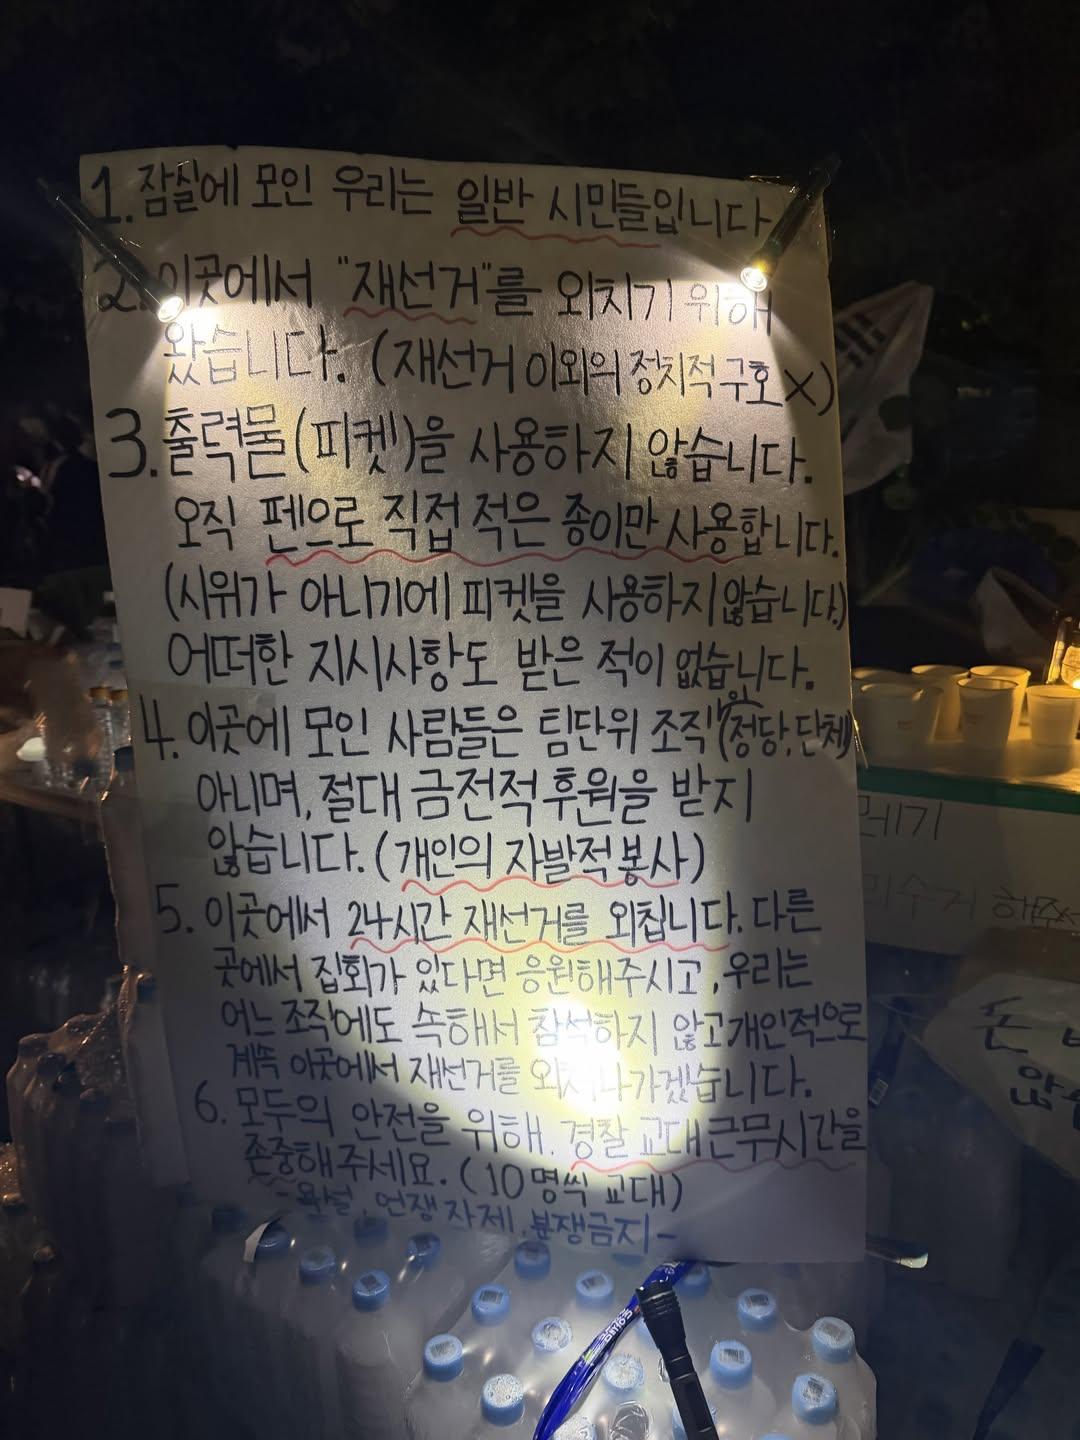 1. 잠실에 모인 우리는 일반 시민들입니다
2. 이곳에서 "재선거"를 외치기 위해
왔습니다. (재선거 이외의 정치적 구호 X)
3. 출력물(피켓)을 사용하지 않습니다.
오직 펜으로 직접 적은 종이만 사용합니다.
(시위가 아니기에 피켓을 사용하지 않습니다.)
어떠한 지시사항도 받은 적이 없습니다.
4. 이곳에 모인 사람들은 팀단위 조직(정당, 단체)
아니며, 절대 금전적 후원을 받지
않습니다. (개인의 자발적 봉사)
5. 이곳에서 24시간 재선거를 외칩니다. 다른
곳에서 집회가 있다면 응원해주시고, 우리는
어느 조직에도 속해서 참석하지 않고 개인적으로
계속 이곳에서 재선거를 외쳐나가겠습니다.
6. 모두의 안전을 위해. 경찰 교대근무시간을
존중해주세요. (10명씩 교대)
- 욕설, 언쟁 자제, 분쟁금지 -